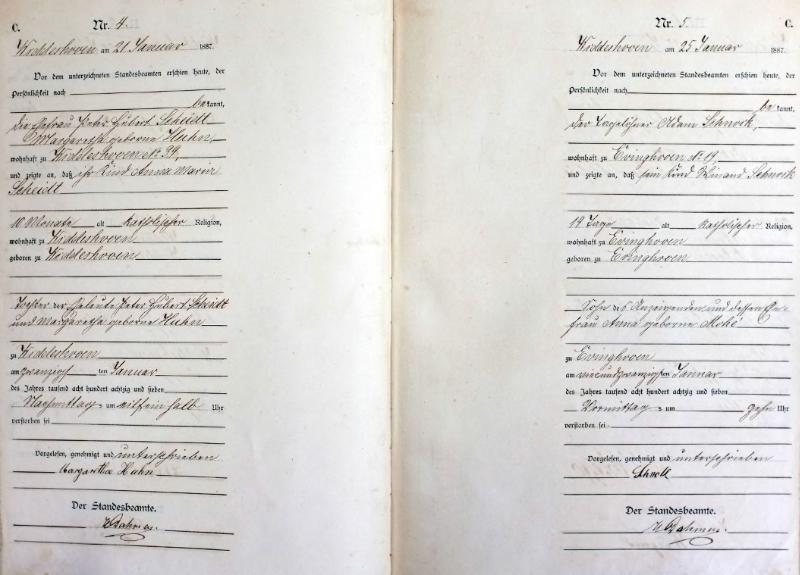 C. Nr. 4.
Widdeshoven am 21 Januar 1887.
Vor dem unterzeichneten Standesbeamten erschien heute, der
Persönlichkeit nach
be kannt,
die Ehefrau Peter Hubert Scheidt
Margaretha geborne Huhn,
wohnhaft zu Widdeshoven No 39,
und zeigte an, daß ihr Kind Anna Maria
Scheidt
10 Monate alt Katholischer Religion,
wohnhaft zu Widdeshoven
geboren zu Widdeshoven
Tochter der Eheleute Peter Hubert Scheidt
und Margaretha geborne Huhn
zu Widdeshoven
am zwanzigsten Januar
des Jahres tausend acht hundert achtzig und sieben
Nachmittags um halb Uhr
verstorben sei
Vorgelesen, genehmigt und unterschrieben
Margaretha Huhn
Der Standesbeamte.
Nr. 5. C.
Widdeshoven am 25 Januar 1887.
Vor dem unterzeichneten Standesbeamten erschien heute, der
Persönlichkeit nach
be kannt,
der Tagelöhner Adam Schnock,
wohnhaft zu Evinghoven No 19,
und zeigte an, daß sein Kind Winand Schnock
14 Tage alt Katholischer Religion,
wohnhaft zu Evinghoven
geboren zu Evinghoven
Sohn des Anzeigenden und dessen Ehe
frau Anna geborne
zu Evinghoven
am vierundzwanzigsten Januar
des Jahres tausend acht hundert achtzig und sieben
Vormittags um zehn Uhr
verstorben sei
Vorgelesen, genehmigt und unterschrieben
Schnock
Der Standesbeamte.